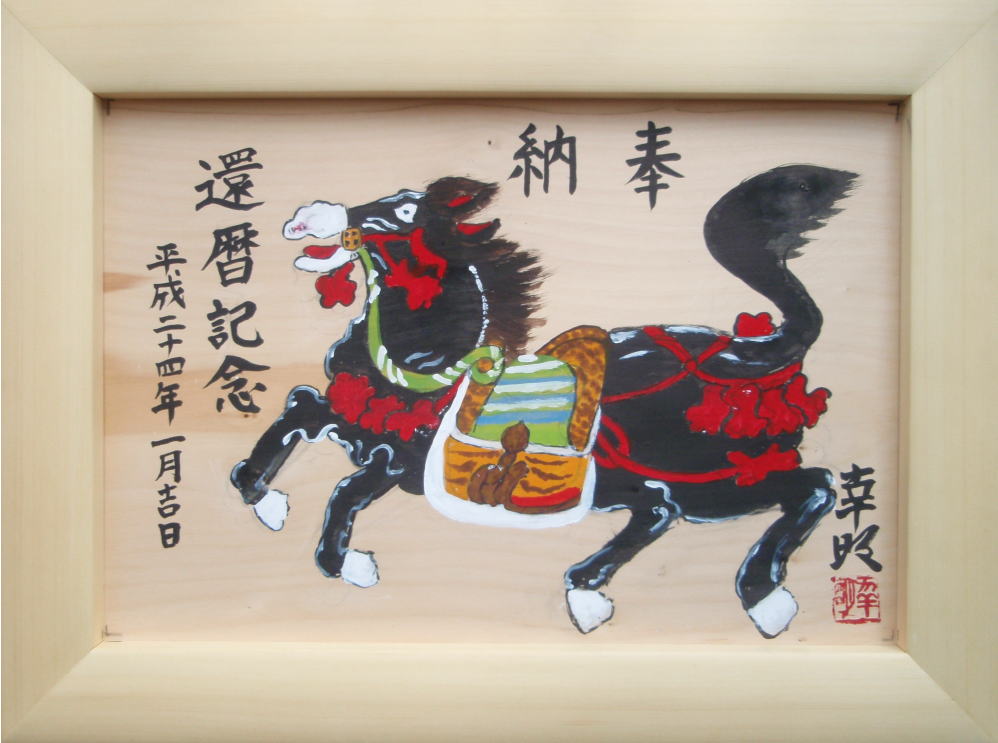 奉納
還暦記念
平成二十四年一月吉日
幸明